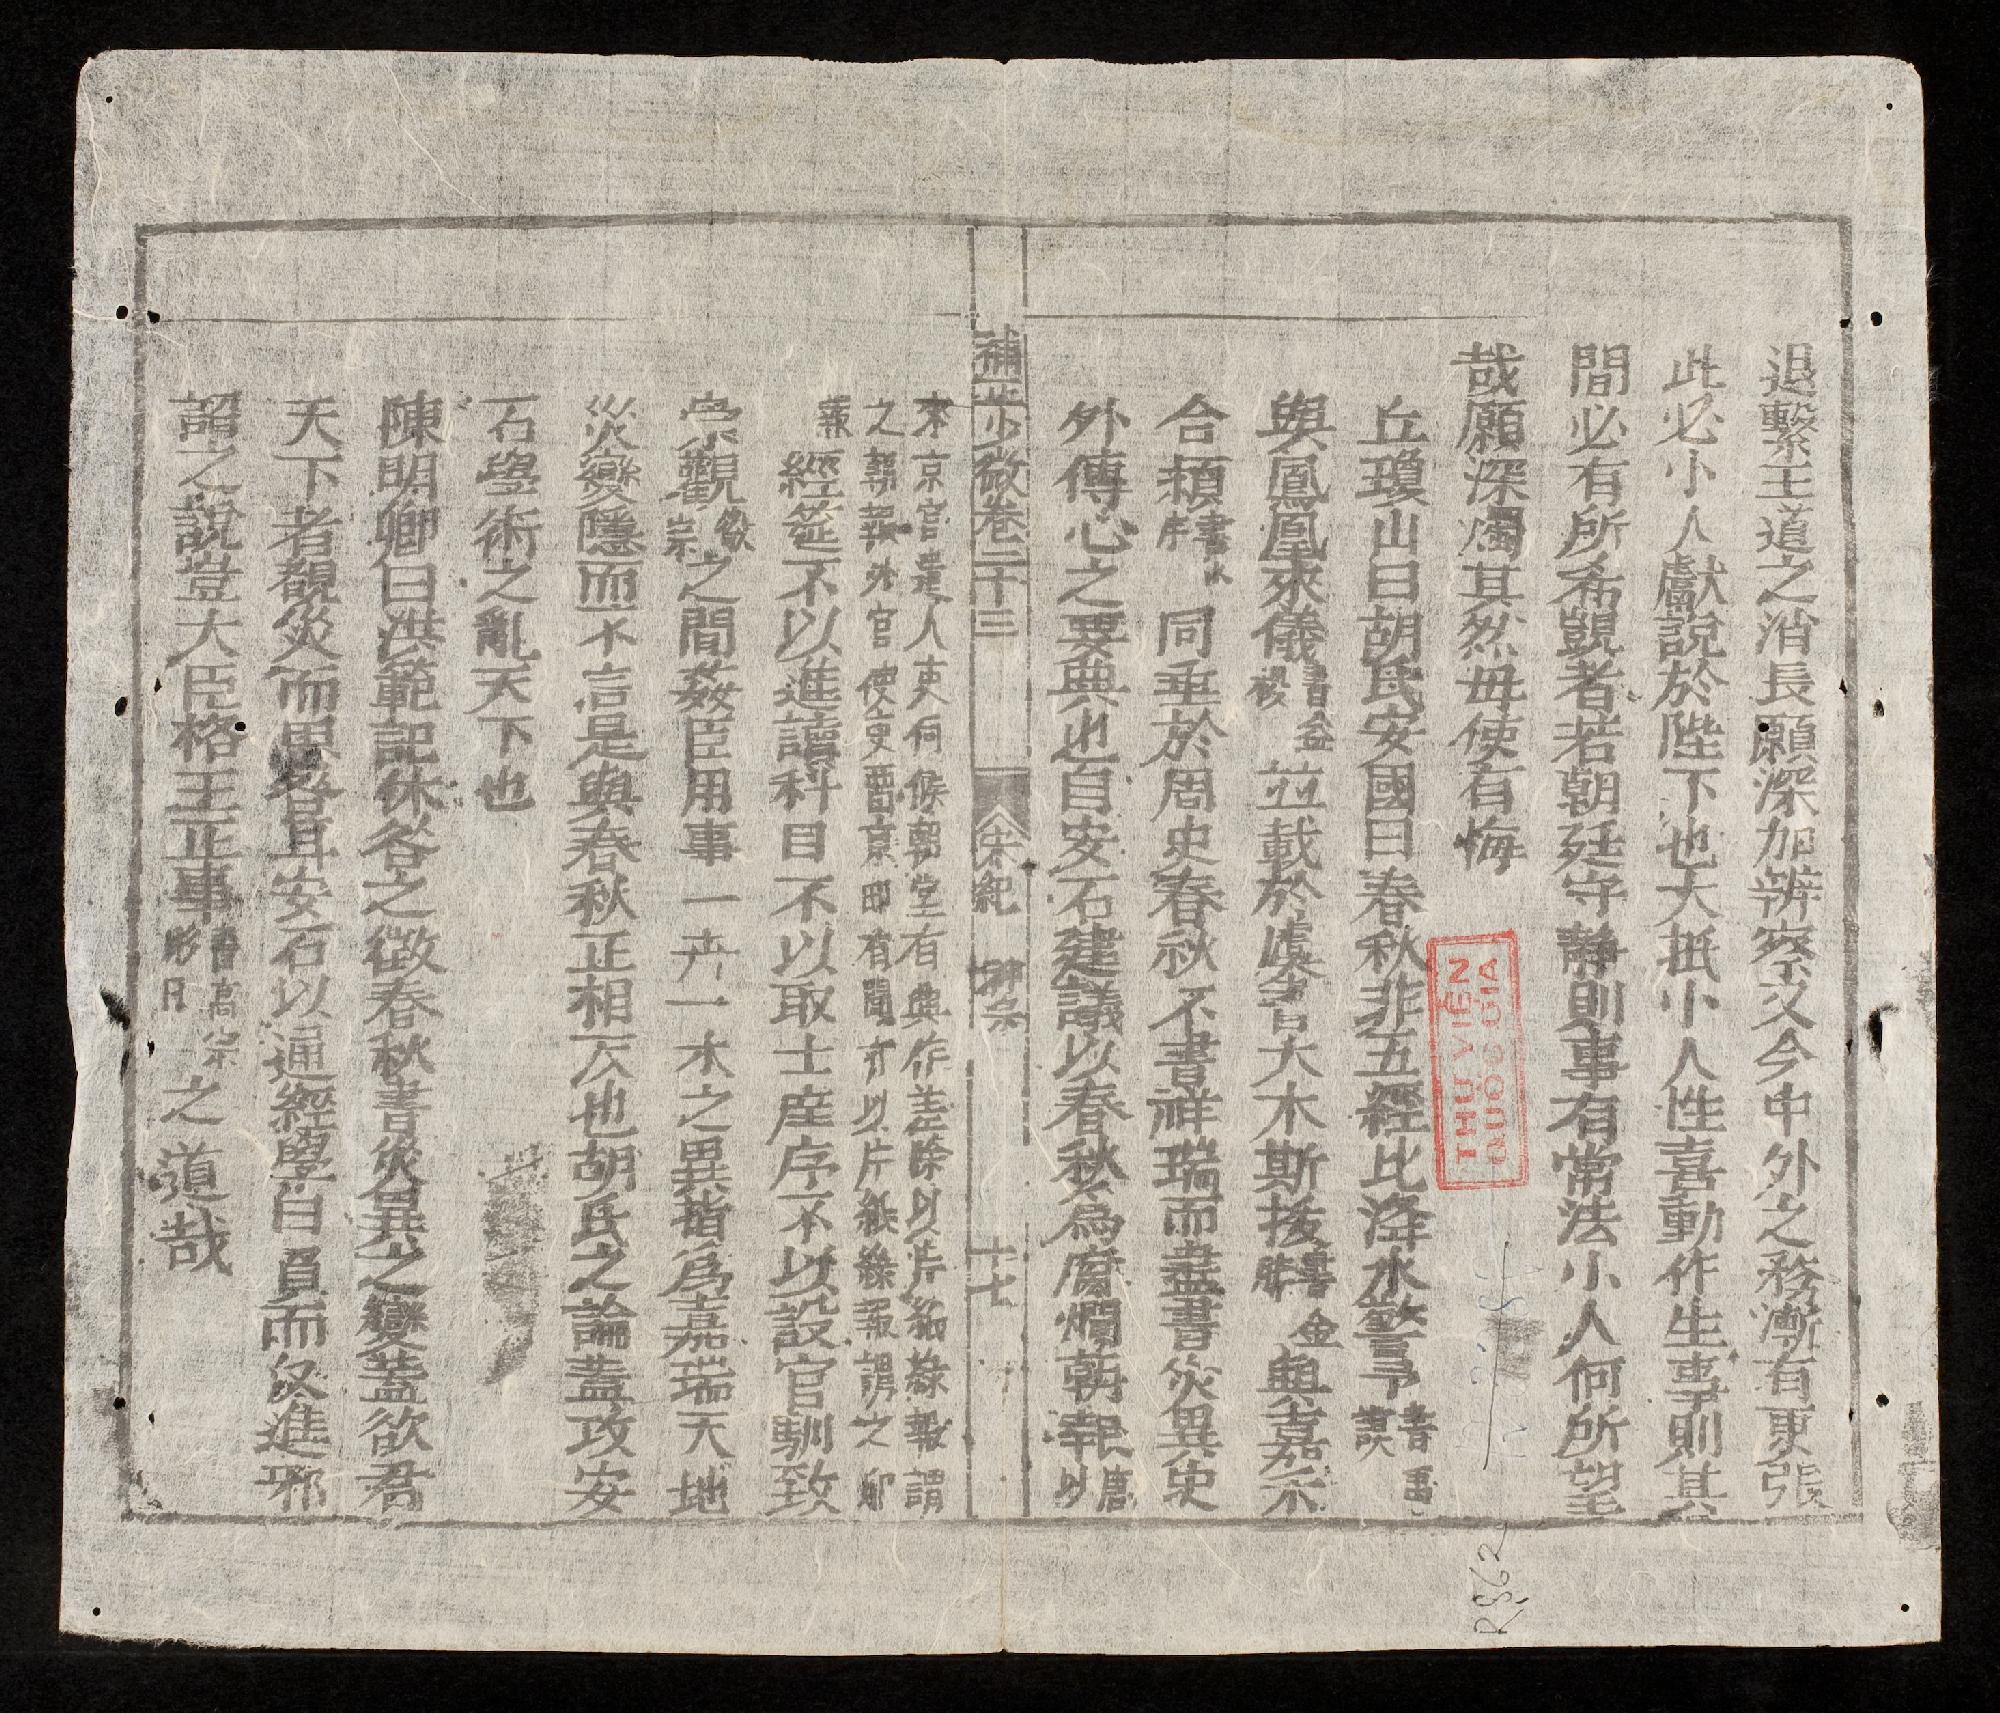 退繫王道之消長願深加辨察又今中外之務漸有更張
此必小人獻說於陛下也大抵小人性喜動作生事則其
間必有所希覬者若朝廷守静則事有常法小人何所望
哉願深燭其然毋使有悔
丘瓊山曰胡氏安國曰春秋非五經比洚水警予書禹謨
與鳳凰來儀書益稷並載於虞書大木斯拔書金縢與嘉禾
合穎書序同垂於周史春秋不書祥瑞而盡書災異史
外傳心之要典也自安石建議以春秋為腐爛朝報唐以
來京官遣人吏伺候朝堂有與作差除以片紙錄報謂
之朝報外官使吏要京即有聞亦以片紙錄報謂之邸
報經筵不以進讀科目不以取士庠序不以設官馴致
崇觀徽宗之間姦臣用事一卉一木之異指為嘉瑞天地
災變隱而不言是與春秋正相反也胡氏之論蓋攻安
石學術之亂天下也
陳明卿曰洪範記休咎之徵春秋書災異之變蓋欲君
天下者覩災而思咎耳安石以通經學自負而反進邪
謟之說豈大臣格王正事書高宗肜日之道哉
補正少微卷二十三
宋紀 神宗
十七
THƯ VIỆN
QUỐC GIA
R562